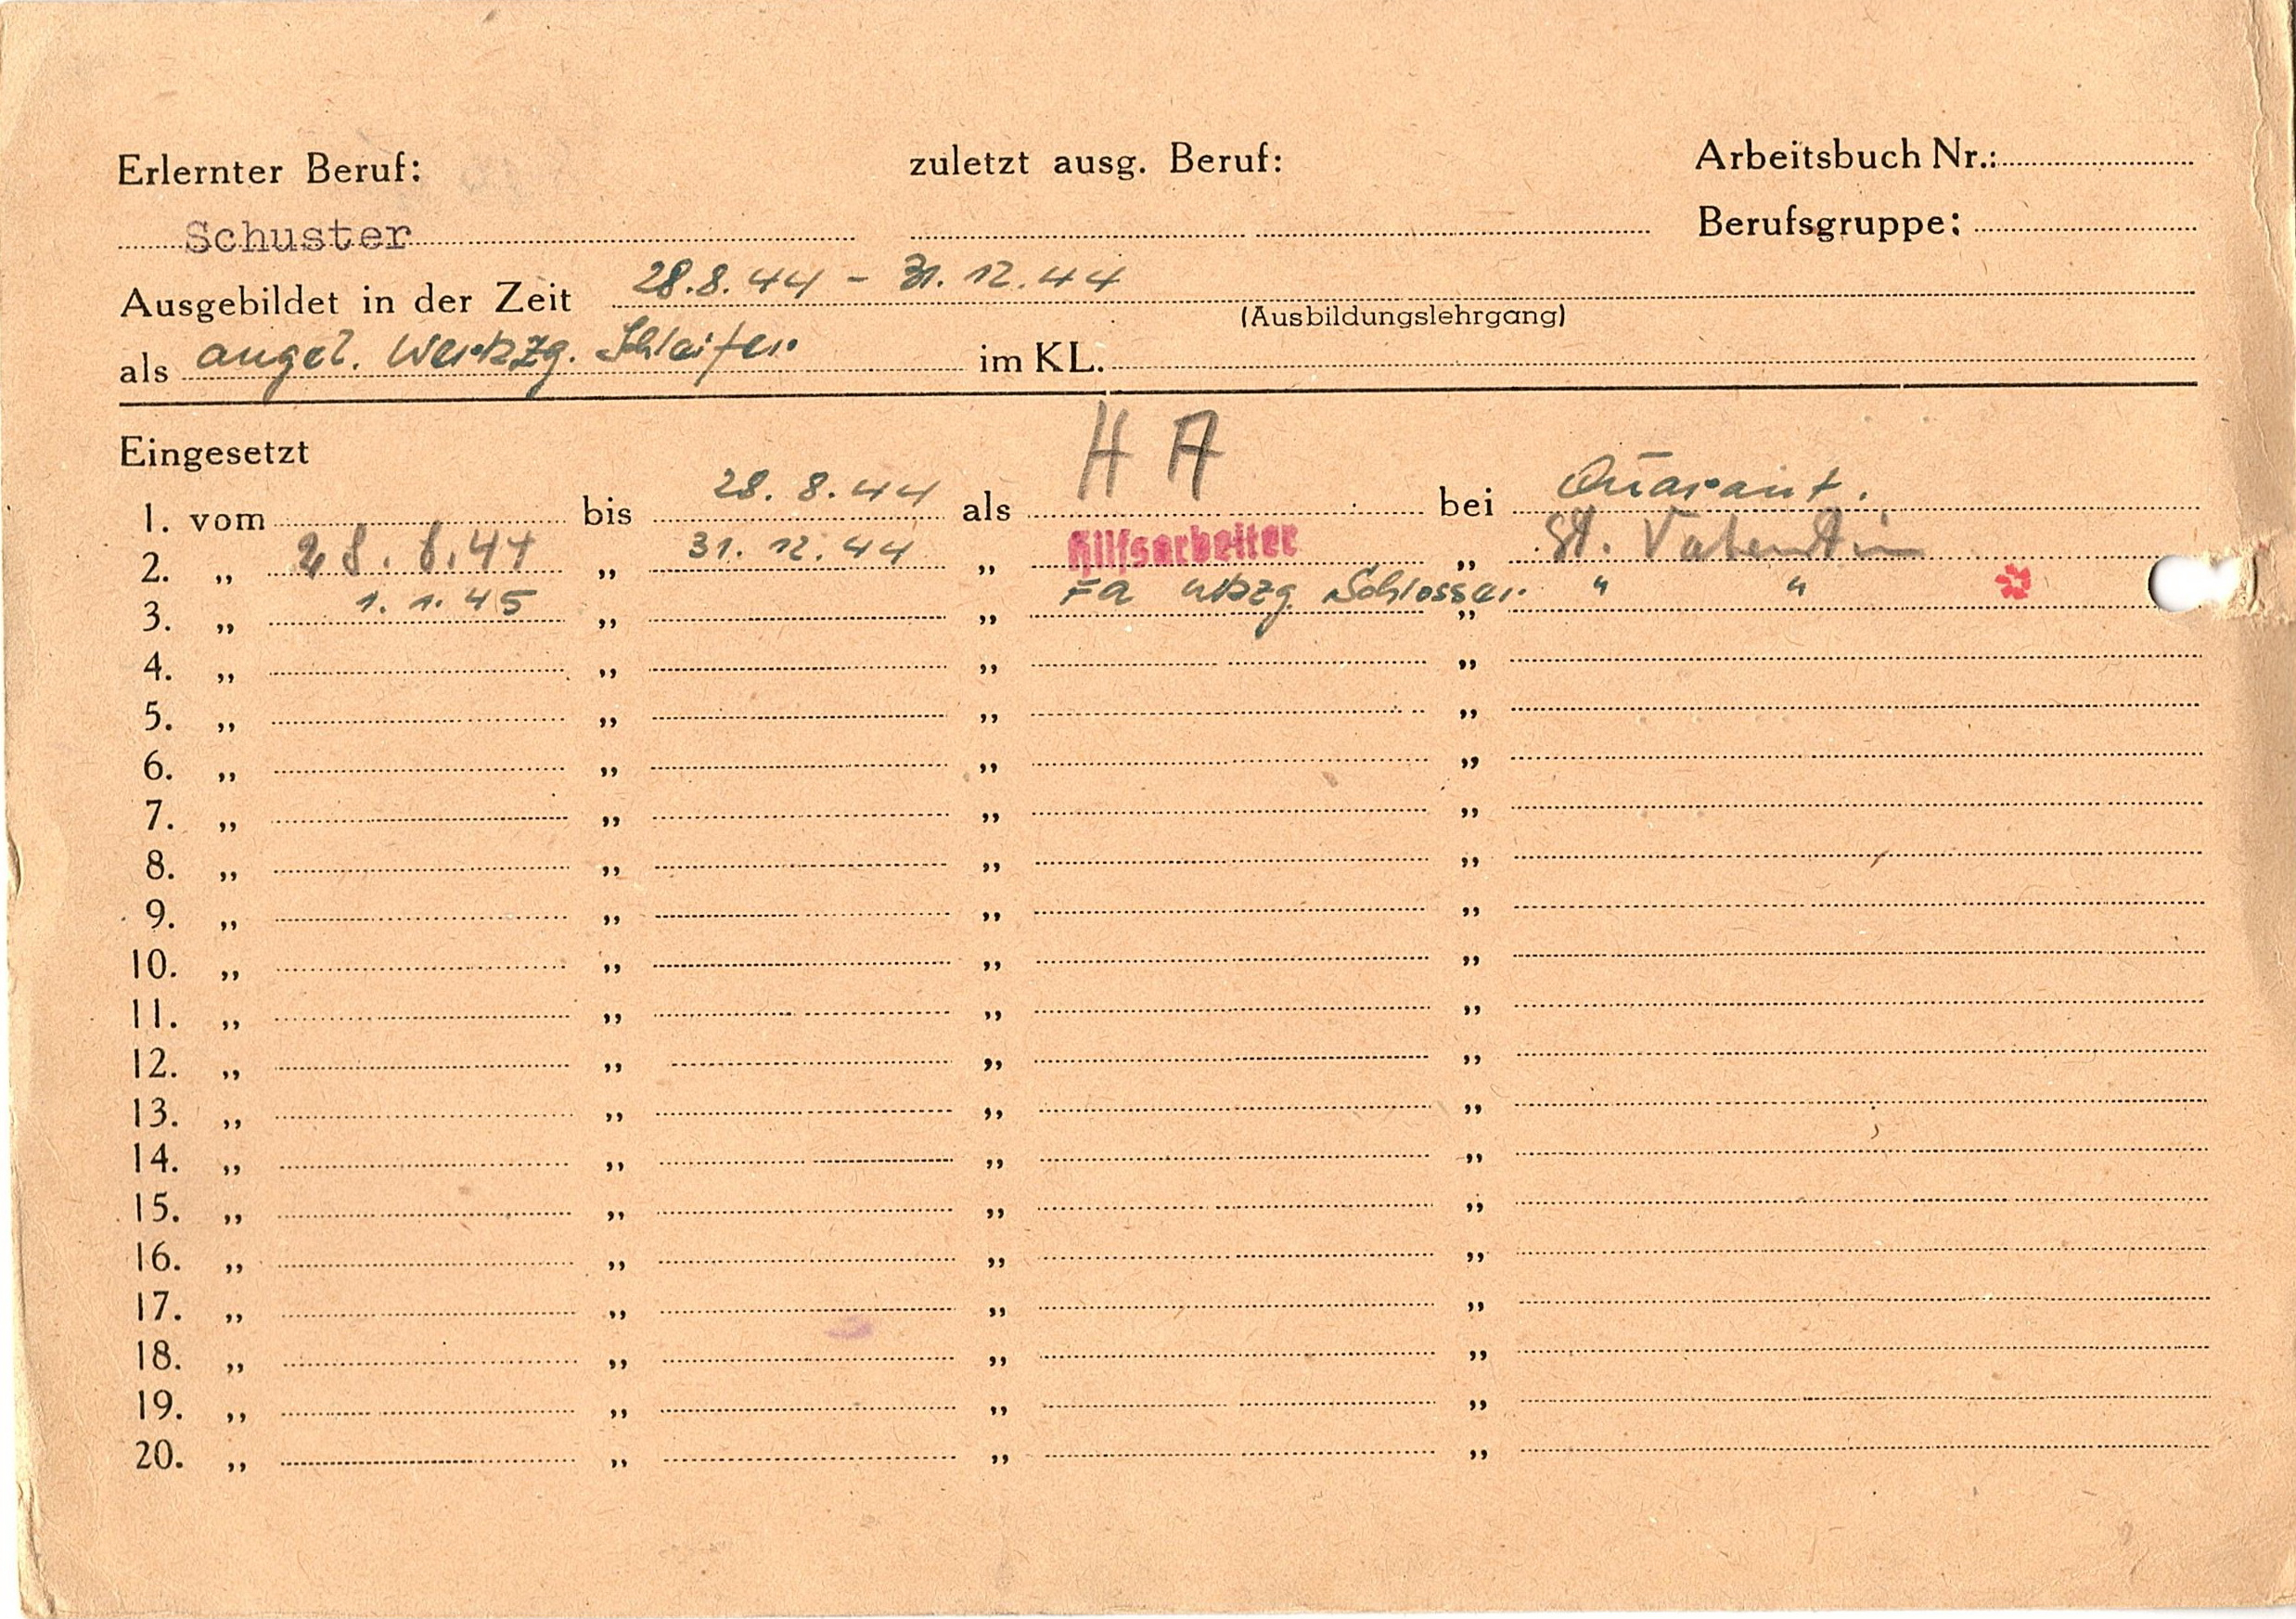 Erlernter Beruf: zuletzt ausg. Beruf: Arbeitsbuch Nr.:
Schuster Berufsgruppe:
Ausgebildet in der Zeit 28.8.44 - 31.12.44
(Ausbildungslehrgang)
als angel. Werkzg. Schleifer im KL.
Eingesetzt
1. vom bis 28.8.44 als H A bei Quarant.
2. „ 28.8.44 „ 31.12.44 „ Hilfsarbeiter „ St. Valentin
3. „ 1.1.45 „ „ FA Wkzg. Schlosser „ " "
4. „ „ „ „
5. „ „ „ „
6. „ „ „ „
7. „ „ „ „
8. „ „ „ „
9. „ „ „ „
10. „ „ „ „
11. „ „ „ „
12. „ „ „ „
13. „ „ „ „
14. „ „ „ „
15. „ „ „ „
16. „ „ „ „
17. „ „ „ „
18. „ „ „ „
19. „ „ „ „
20. „ „ „ „